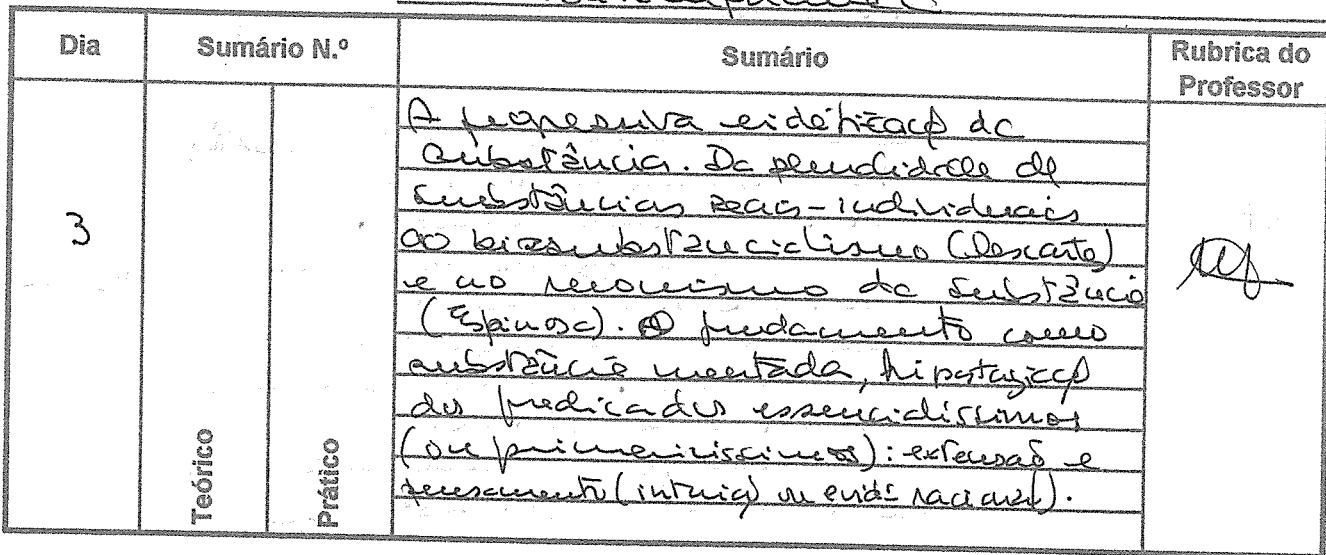 Dia
Sumário N.º
Sumário
Rubrica do
Professor
3
Teórico
Prático
A progressiva eidétização da
substância. Da pluralidade de
substâncias reais-individuais
ao bissubstancialismo (Descartes)
e ao monismo da substância
(Espinosa). O fundamento como
substância mentada, hipostização
dos predicados essencialíssimos
(ou primeiríssimos): extensão e
pensamento (intuição ou racional).